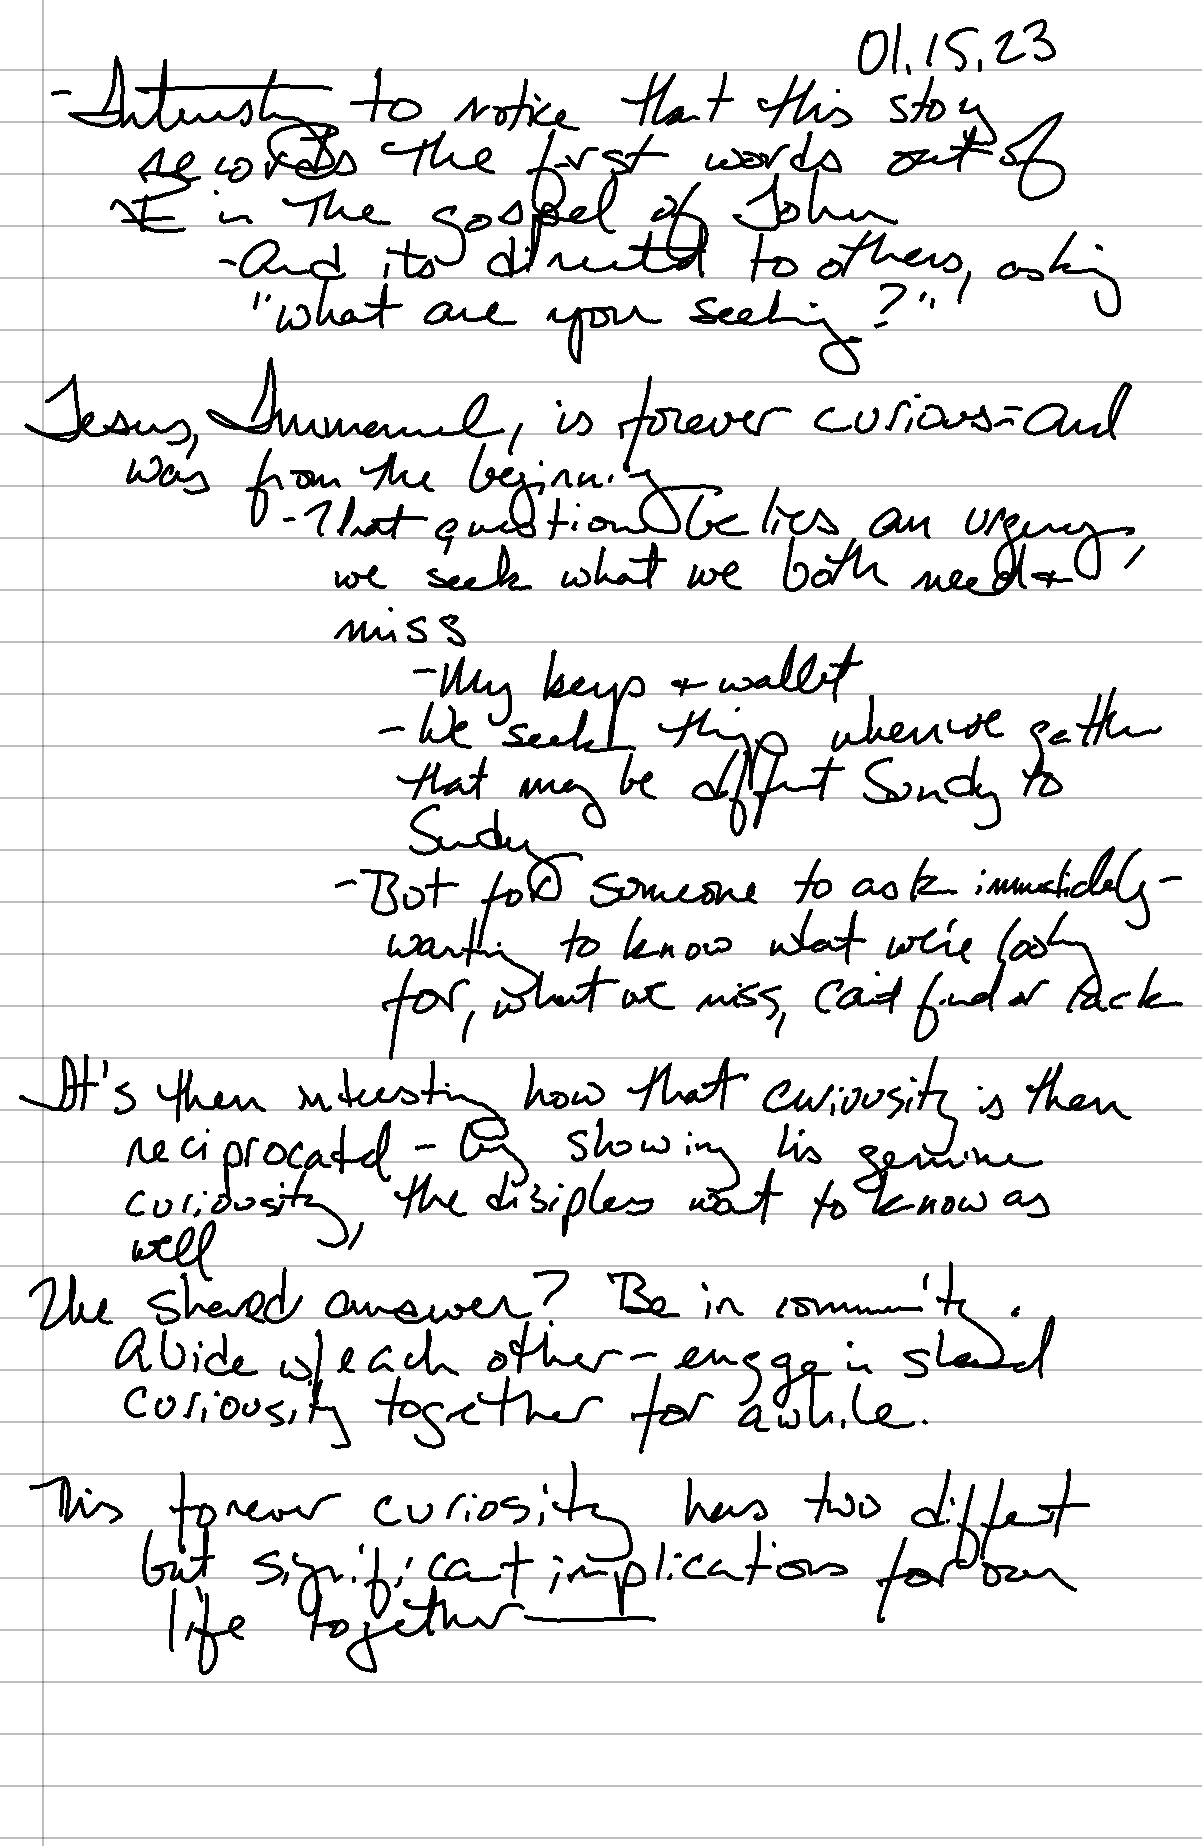 01.15.23
- Interesting to notice that this story
records the first words out of
in the gospel of John
- And its directed to others, asking
"what are you seeking?"
Jesus, Immanuel, is forever curious - and
was from the beginning
- That question belies an urgency,
we seek what we both need +
miss
- My keys + wallet
- We seek things when we gather
that may be different Sunday to
Sunday
- But for someone to ask immediately -
wanting to know what we're looking
for, what we miss, can't find or lack
It's then interesting how that curiousity is then
reciprocated - by showing his genuine
curiousity, the disiples want to know as
well
The shared answer? Be in community.
Abide w/each other - engage in shared
curiousity together for awhile.
This forever curiosity has two different
but significant implications for our
life together